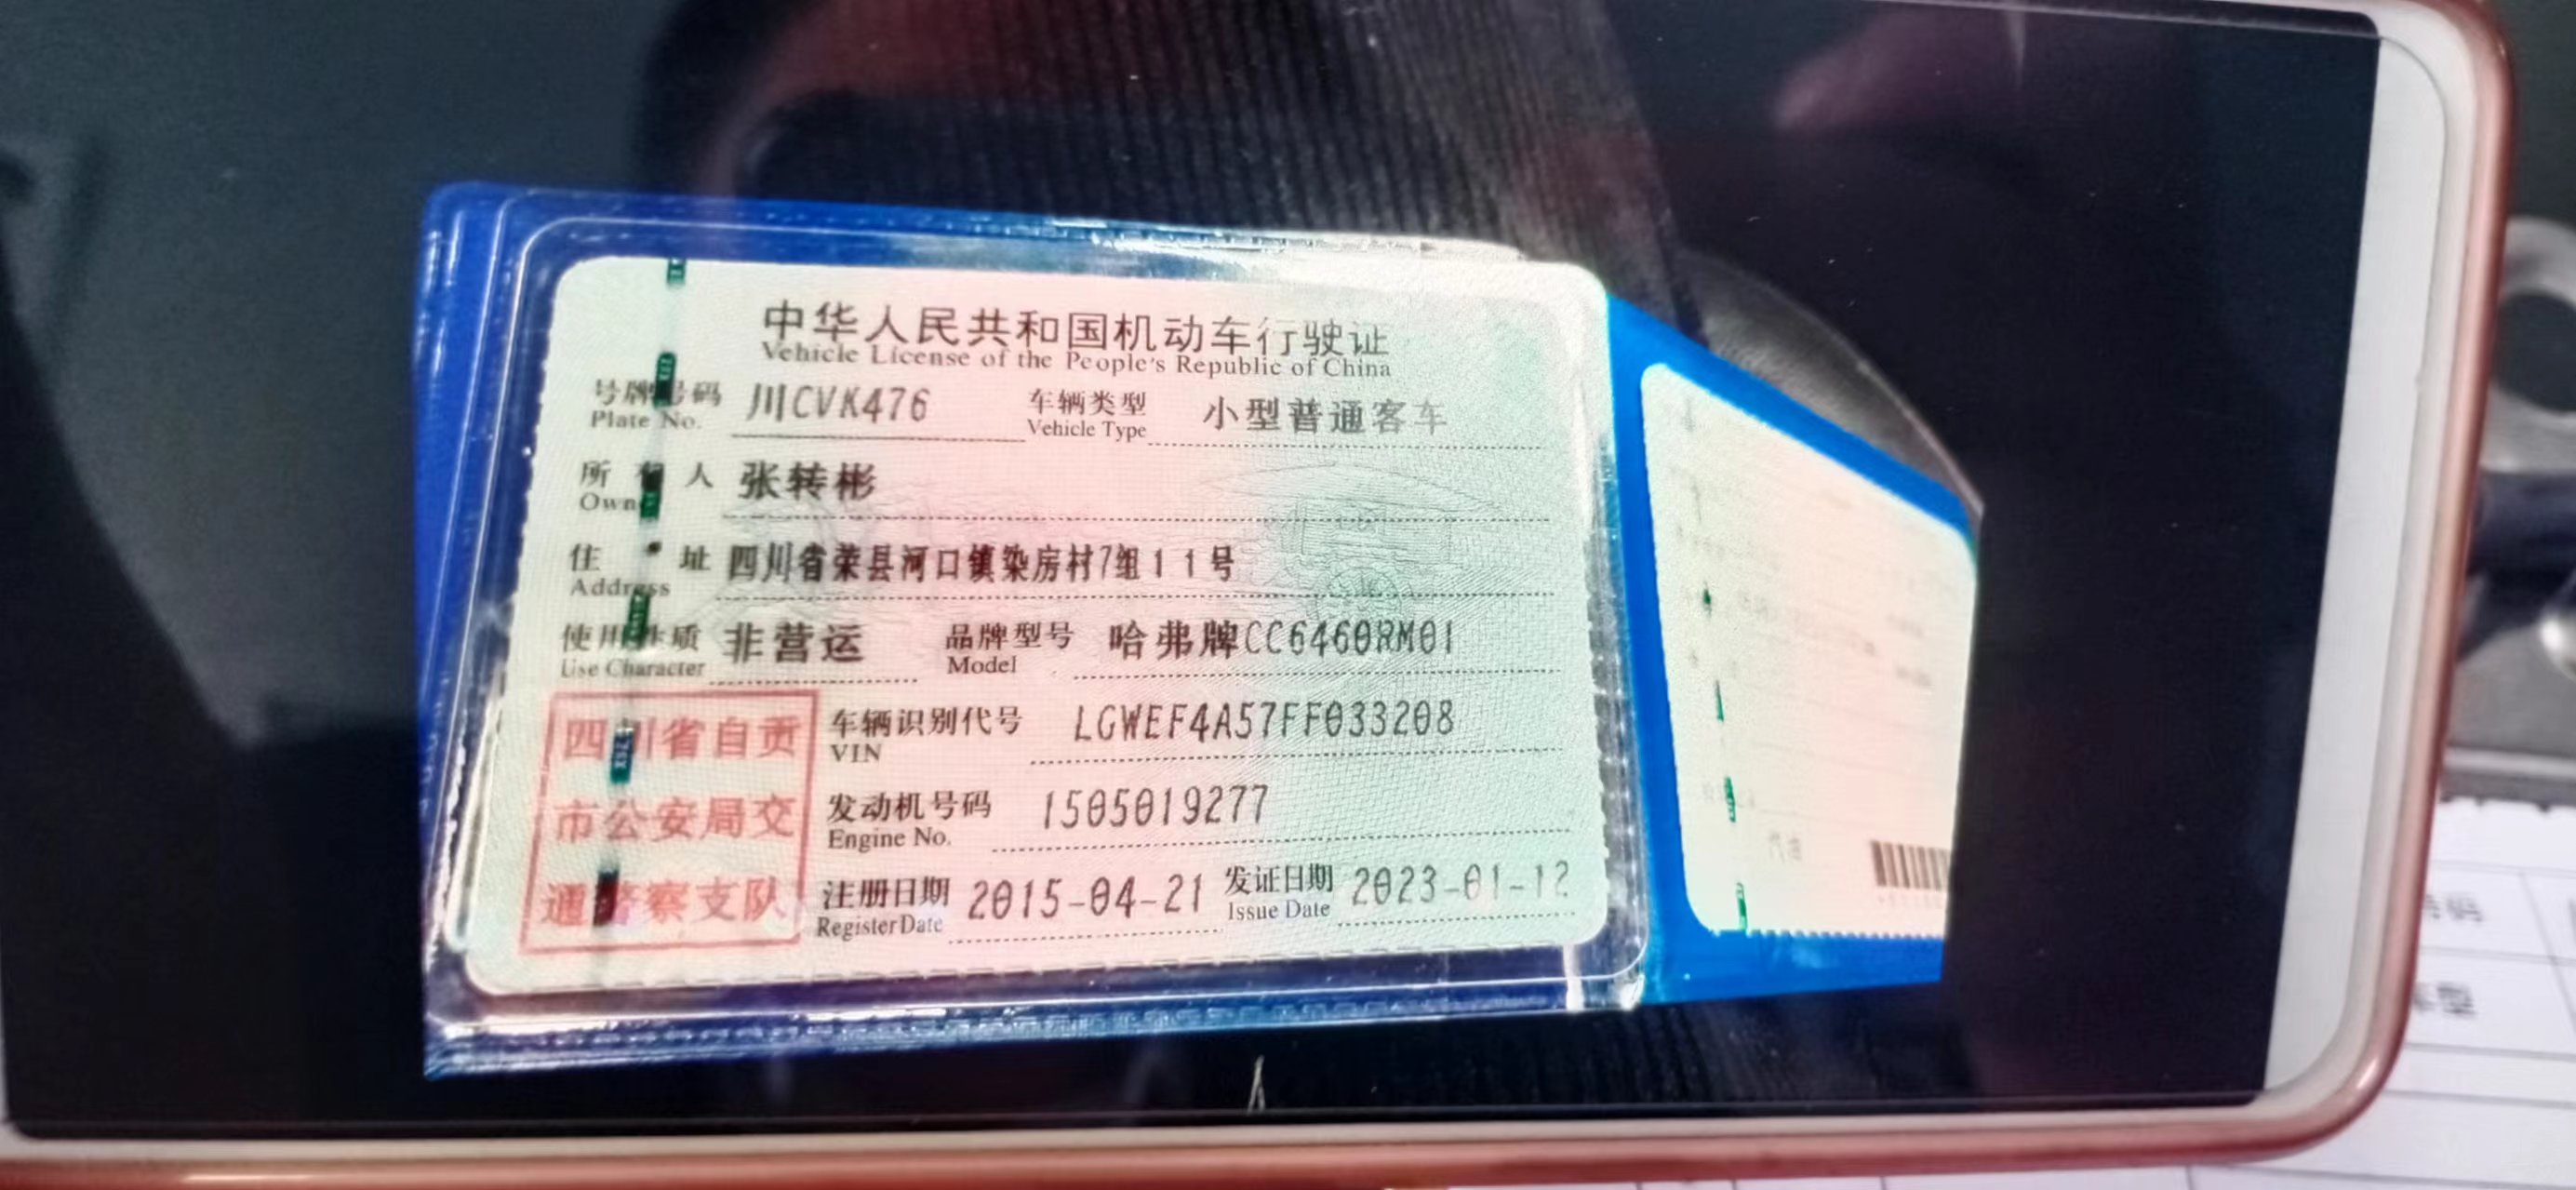 中华人民共和国机动车行驶证
Vehicle License of the People's Republic of China
号牌号码 川CVK476 车辆类型 小型普通客车
Plate No. Vehicle Type
所有人 张转彬
Owner
住址 四川省荣县河口镇染房村7组11号
Address
使用性质 非营运 品牌型号 哈弗牌CC6460RM01
Use Character Model
四川省自贡
市公安局交
通警察支队
车辆识别代号 LGWEF4A57FF033208
VIN
发动机号码 1505019277
Engine No.
注册日期 2015-04-21 发证日期 2023-01-12
Register Date Issue Date